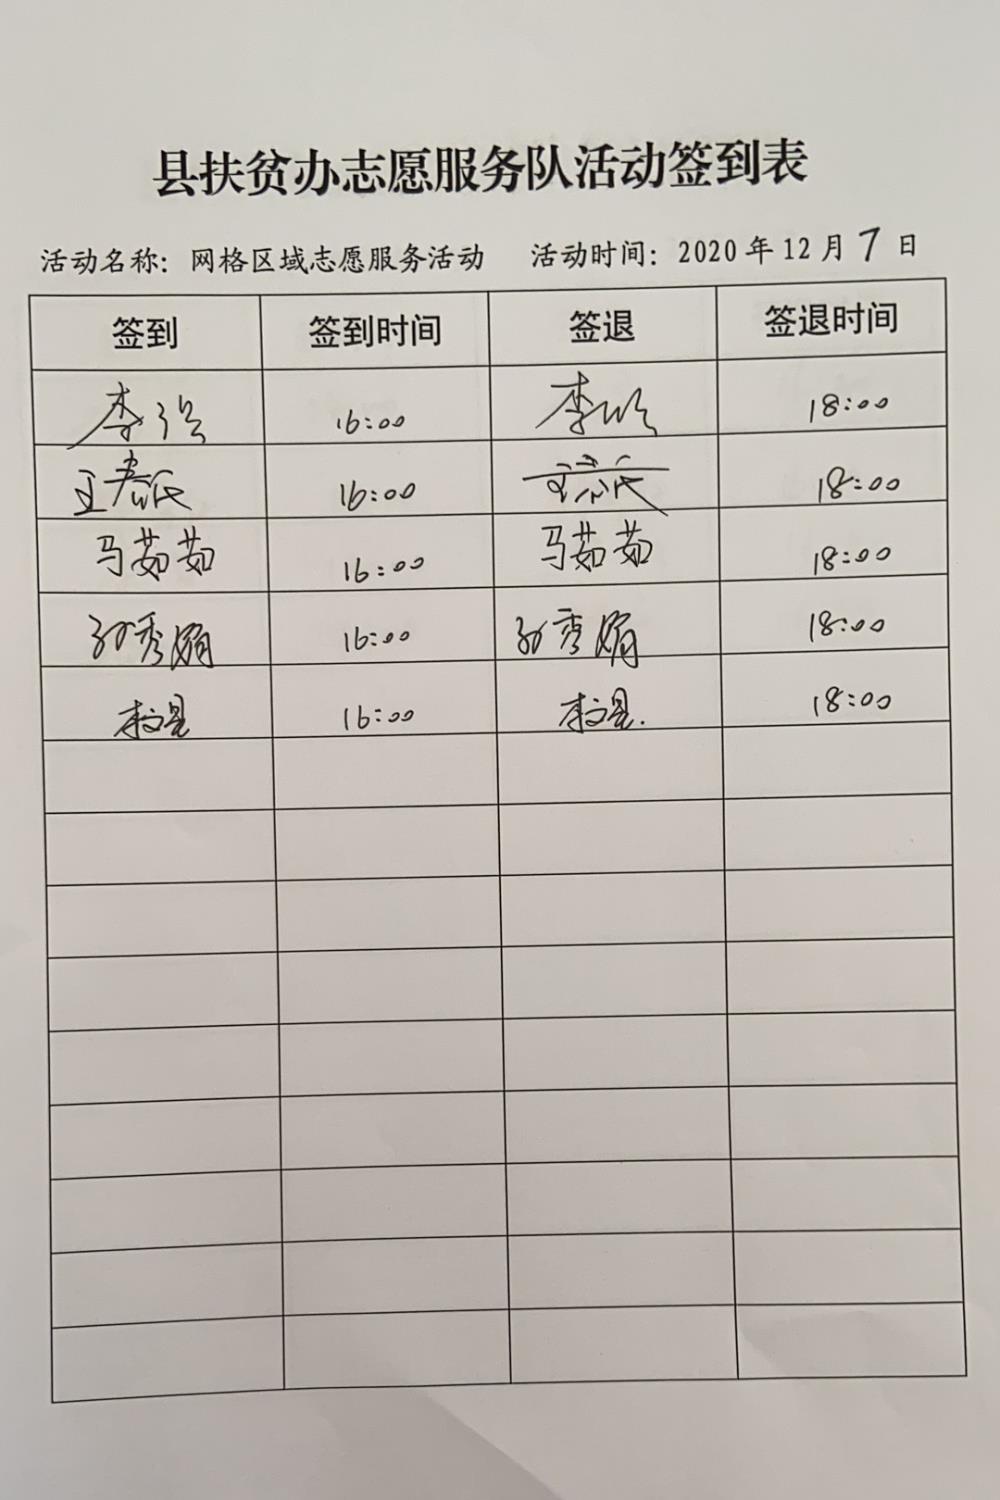 县扶贫办志愿服务队活动签到表
活动名称：网格区域志愿服务活动 活动时间：2020年12月7日
签到 签到时间 签退 签退时间
李强 16:00 李 18:00
王 16:00 18:00
马茹茹 16:00 马茹茹 18:00
孙秀娟 16:00 孙秀娟 18:00
16:00 18:00